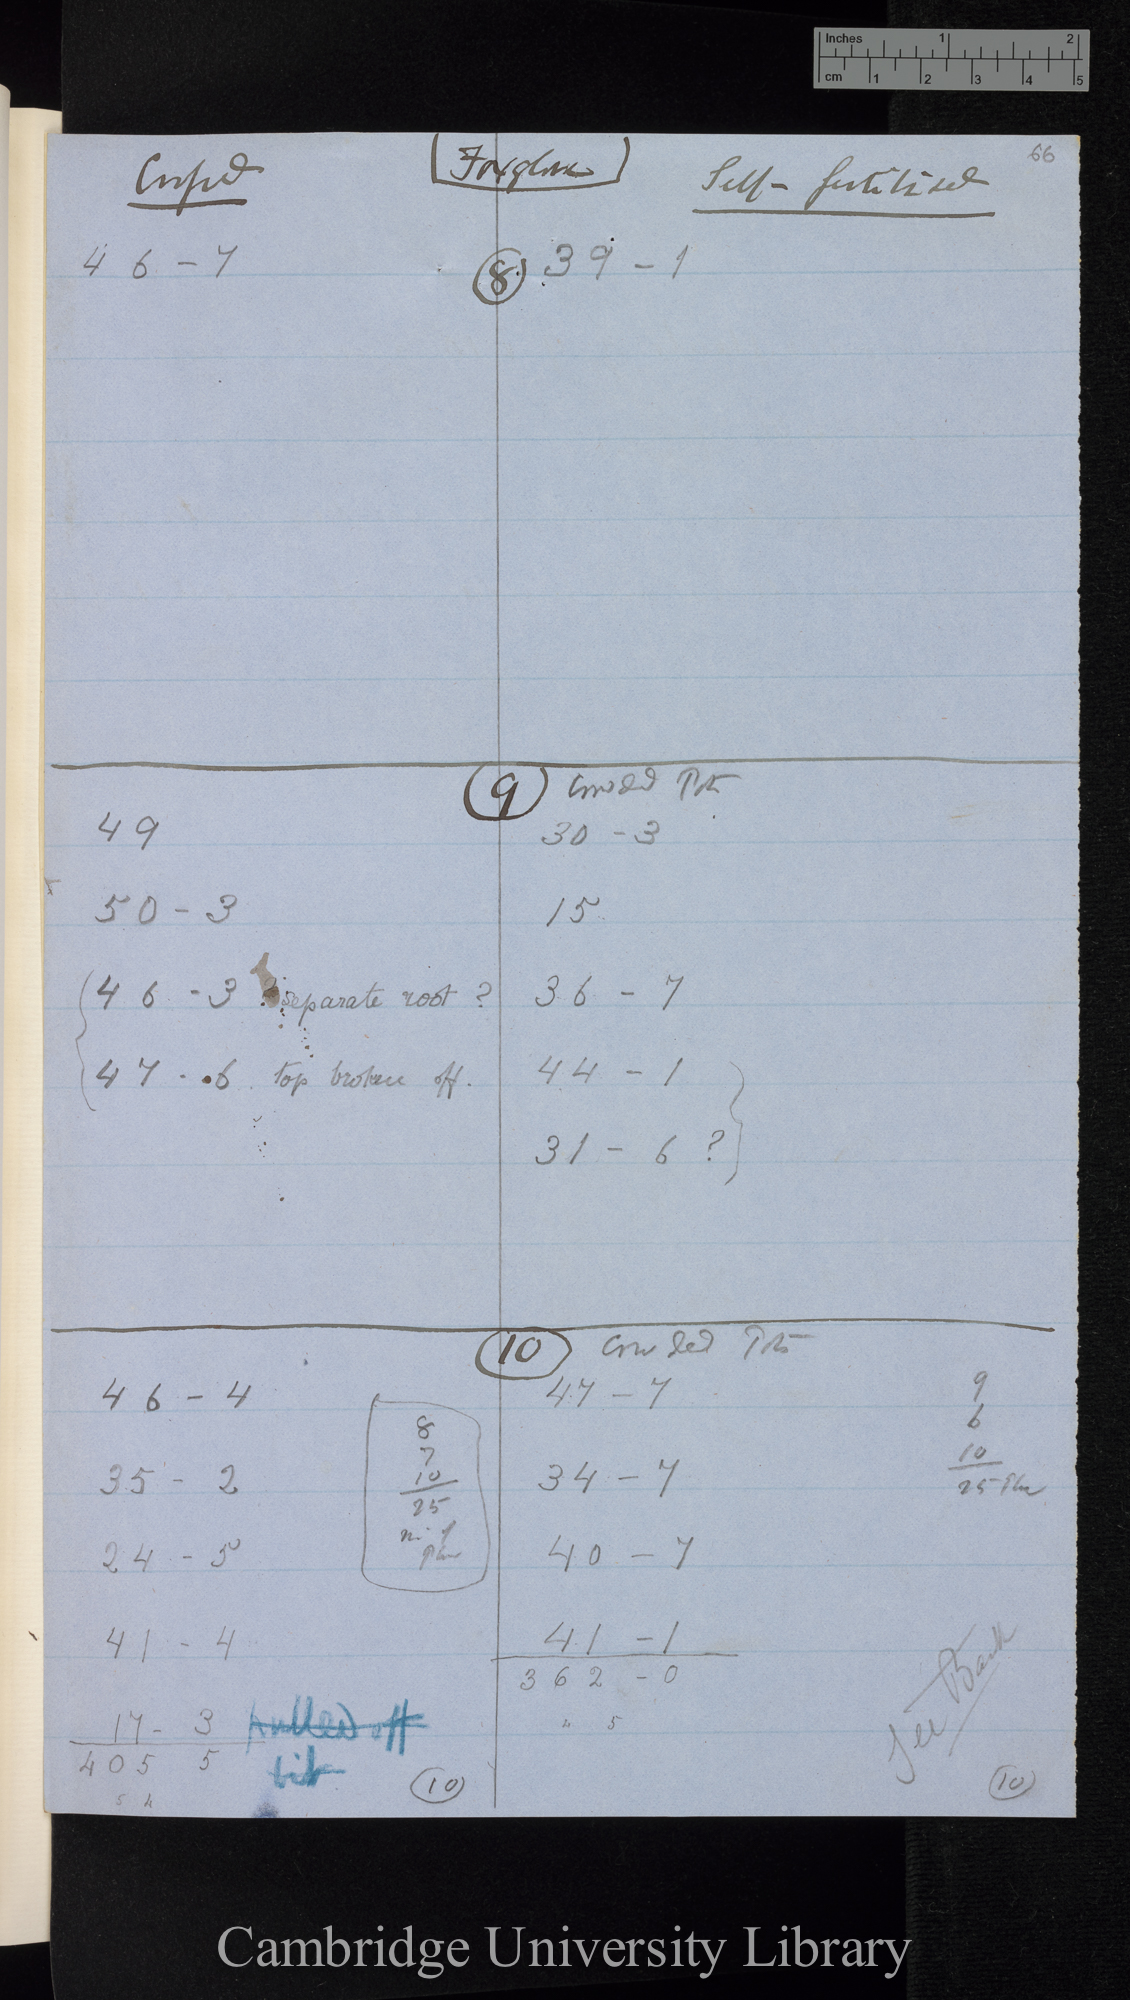 Inches 1 2
cm 1 2 3 4 5
66
Crossed Foxglove Self-fertilised
46 - 7 8 39 - 1
9 Crowded Pots
49 30 - 3
50 - 3 15
46 - 3 ? separate root ? 36 - 7
47 - 6 top broken off. 44 - 1
31 - 6 ?
10 Crowded Pots
46 - 4 47 - 7
8
7
10
25
no. of
Plants
9
6
10
25 Plan
35 - 2 34 - 7
24 - 5 40 - 7
41 - 4 41 - 1
362 - 0
4 5
17 - 3 pulled off
405 5 bit
5 4
10
See Back
10
Cambridge University Library